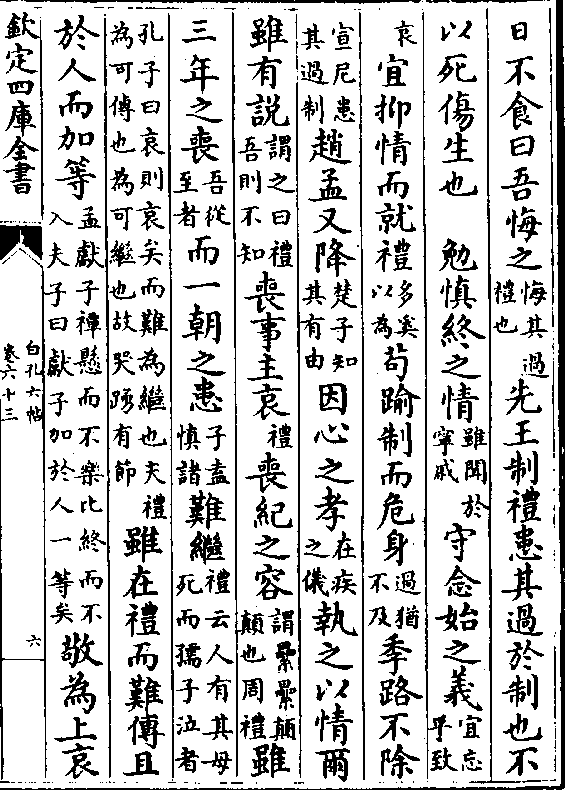 日不食曰吾悔之悔其過禮也先王制禮患其過於制也不
以死傷生也 勉慎終之情雖聞於寧戚守念始之義宜忘乎致
哀宜抑情而就禮多奚以為苟踰制而危身過猶不及季路不除
宣尼患其過制趙孟又降楚子知其有由因心之孝在疚之儀執之以情爾
雖有說謂之曰禮吾則不知喪事主哀禮喪紀之容謂纍纍顛顛也周禮雖
三年之喪吾從至者而一朝之患子盍慎諸難繼禮云人有其母死而孺子泣者
孔子曰哀則哀矣而難為繼也夫禮為可傳也為可繼也故哭踴有節雖在禮而難傳且
於人而加等孟獻子禫懸而不樂比終而不入夫子曰獻子加於人一等矣敬為上哀
欽定四庫全書
白孔六帖
卷六十三
六